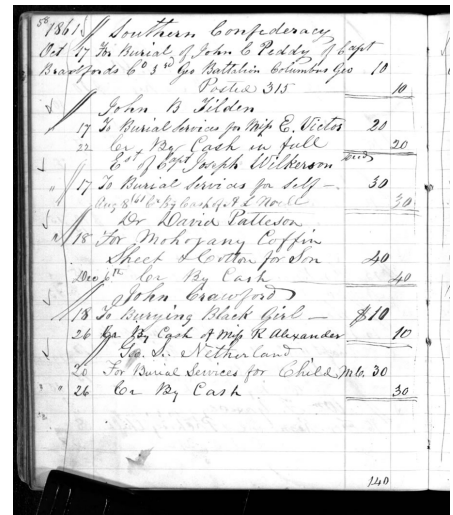 58
1861 Southern Confederacy
Oct 17 For Burial of John C Peddy of Capt
Co 3rd Geo Battalion Columbus Geo 10
Posted 315 10
John B Tilden
17 To Burial Services for Miss E. Victor 20
22 Cr By Cash in full 20
Est of Capt Joseph Wilkerson
" 17 To Burial Services for Self — 30
Aug 8 Cr By Cash of 30
Dr David Patteson
" 18 For Mohogany Coffin
Sheet & Cotton for Son 40
Dec 6th Cr By Cash 40
John Crawford
18 To Burying Black Girl — $10
26 Cr By Cash of Miss R Alexander 10
Netherland
20 For Burial Services for Child 30
" 26 Cr By Cash 30
140